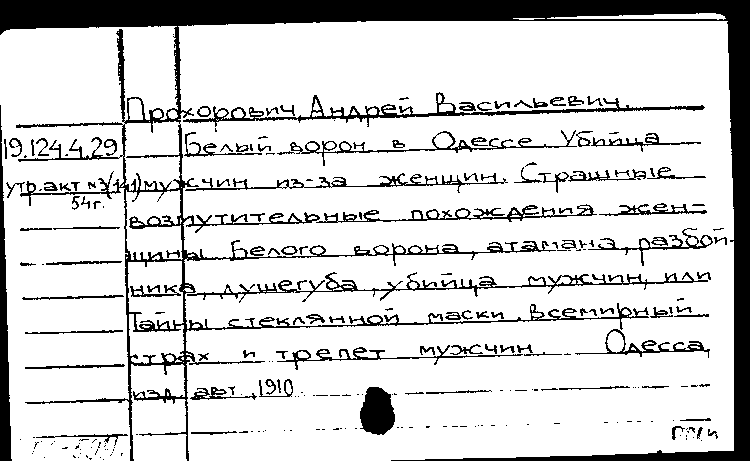 Прохорович, Андрей Васильевич.
19.124.4.29 Белый ворон в Одессе. Убийца
утр. акт №3(141) мужчин из-за женщин. Страшные
54г.
возмутительные похождения жен-
щины Белого ворона, атамана, разбой-
ника, душегуба, убийца мужчин, или
Тайны стеклянной маски. Всемирный
страх и трепет мужчин. Одесса,
изд. авт., 1910